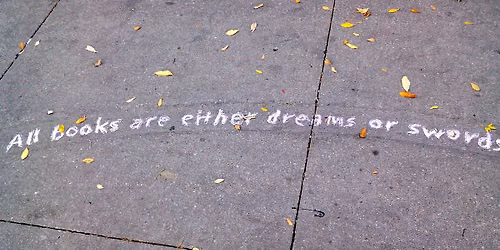 All books are either dreams or swords